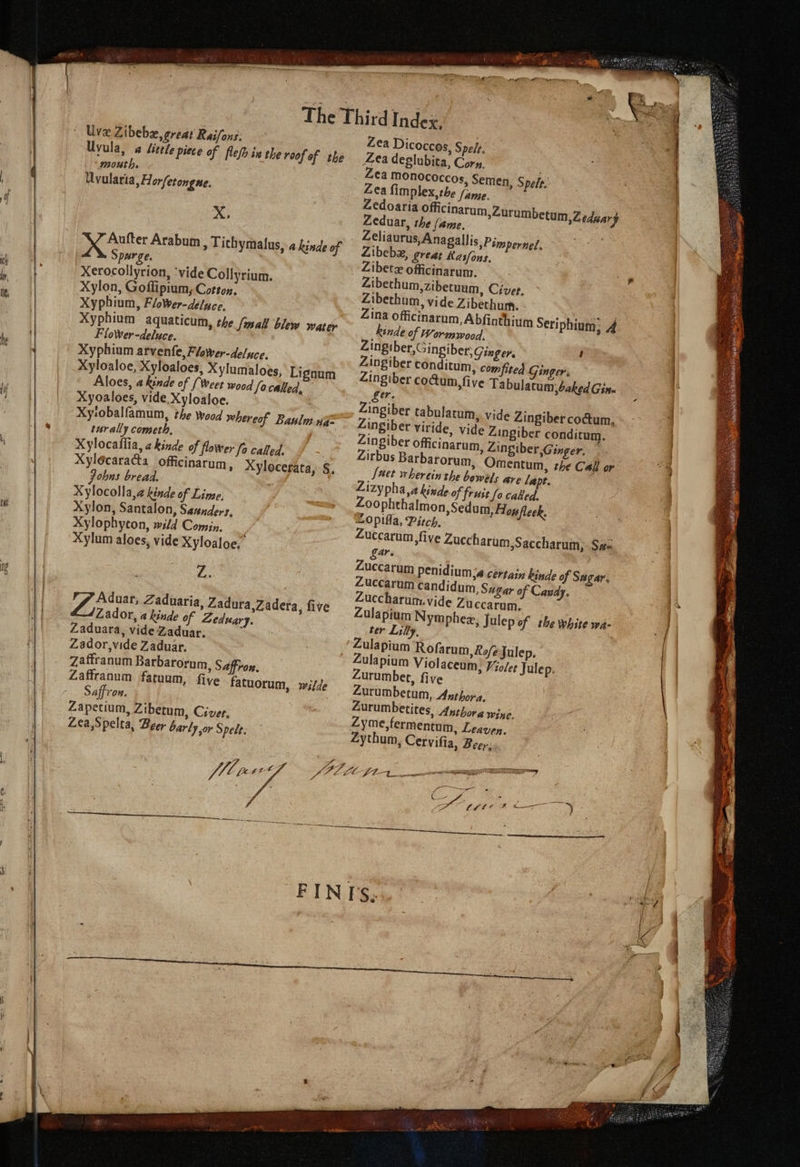 The Third Index.
Uvæ Zibebæ, great Raisons.
Uvula, a little piece of flesh in the roof of the
mouth.
Uvularia, Horsetongue.
X.
XAuster Arabum, Tithymalus, a kinde of
Spurge.
Xerocollyrion, vide Collyrium.
Xylon, Gossipium, Cotton.
Xyphium, Flower-deluce.
Xyphium aquaticum, the small blew water
Flower-deluce.
Xyphium arvense, Flower-deluce.
Xyloaloe, Xyloaloes, Xylumaloes, Lignum
Aloes, a kinde of sweet wood so called.
Xyoaloes, vide Xyloaloe.
Xylobalsamum, the Wood whereof Baulm na-
turally cometh.
Xylocassia, a kinde of flower so called.
Xylocaracta officinarum, Xylocerata, S.
Johns bread.
Xylocolla, a kinde of Lime.
Xylon, Santalon, Saunders.
Xylophyton, wild Comin.
Xylum aloes, vide Xyloaloe.
Z.
ZAduar, Zaduaria, Zadura, Zadera, sive
Zador, a kinde of Zeduary.
Zaduara, vide Zaduar.
Zador, vide Zaduar.
Zaffranum Barbarorum, Saffron.
Zaffranum fatuum, sive fatuorum, wilde
Saffron.
Zapetium, Zibetum, Civet.
Zea, Spelta, Beer barly, or Spelt.
Zea Dicoccos, Spelt.
Zea deglubita, Corn.
Zea monococcos, Semen, Spelt.
Zea simplex, the same.
Zedoaria officinarum, Zurumbetum, Zeduary
Zeduar, the same.
Zeliaurus, Anagallis, Pimpernel.
Zibebæ, great Raisons.
Zibetæ officinarum.
Zibethum, zibetuum, Civet.
Zibethum, vide Zibethum.
Zina officinarum, Absinthium Seriphium; A
kinde of Wormwood.
Zingiber, Gingiber, Ginger.
Zingiber conditum, comfited Ginger.
Zingiber coctum, sive Tabulatum, baked Gin-
ger.
Zingiber tabulatum, vide Zingiber coctum.
Zingiber viride, vide Zingiber conditum.
Zingiber officinarum, Zingiber, Ginger.
Zirbus Barbarorum, Omentum, the Call or
suet wherein the bowels are lapt.
Zizypha, a kinde of fruit so called.
Zoophthalmon, Sedum, Housleek.
Zopissa, Pitch.
Zuccarum, sive Zuccharum, Saccharum, Su-
gar.
Zuccarum penidium, a certain kinde of Sugar.
Zuccarum candidum, Sugar of Candy.
Zuccharum, vide Zuccarum.
Zulapium Nymphææ, Julep of the white wa-
ter Lilly.
Zulapium Rosarum, Rose Julep.
Zulapium Violaceum, Violet Julep.
Zurumbet, sive
Zurumbetum, Anthora.
Zurumbetites, Anthora wine.
Zyme, fermentum, Leaven.
Zythum, Cervisia, Beer.
FINIS.